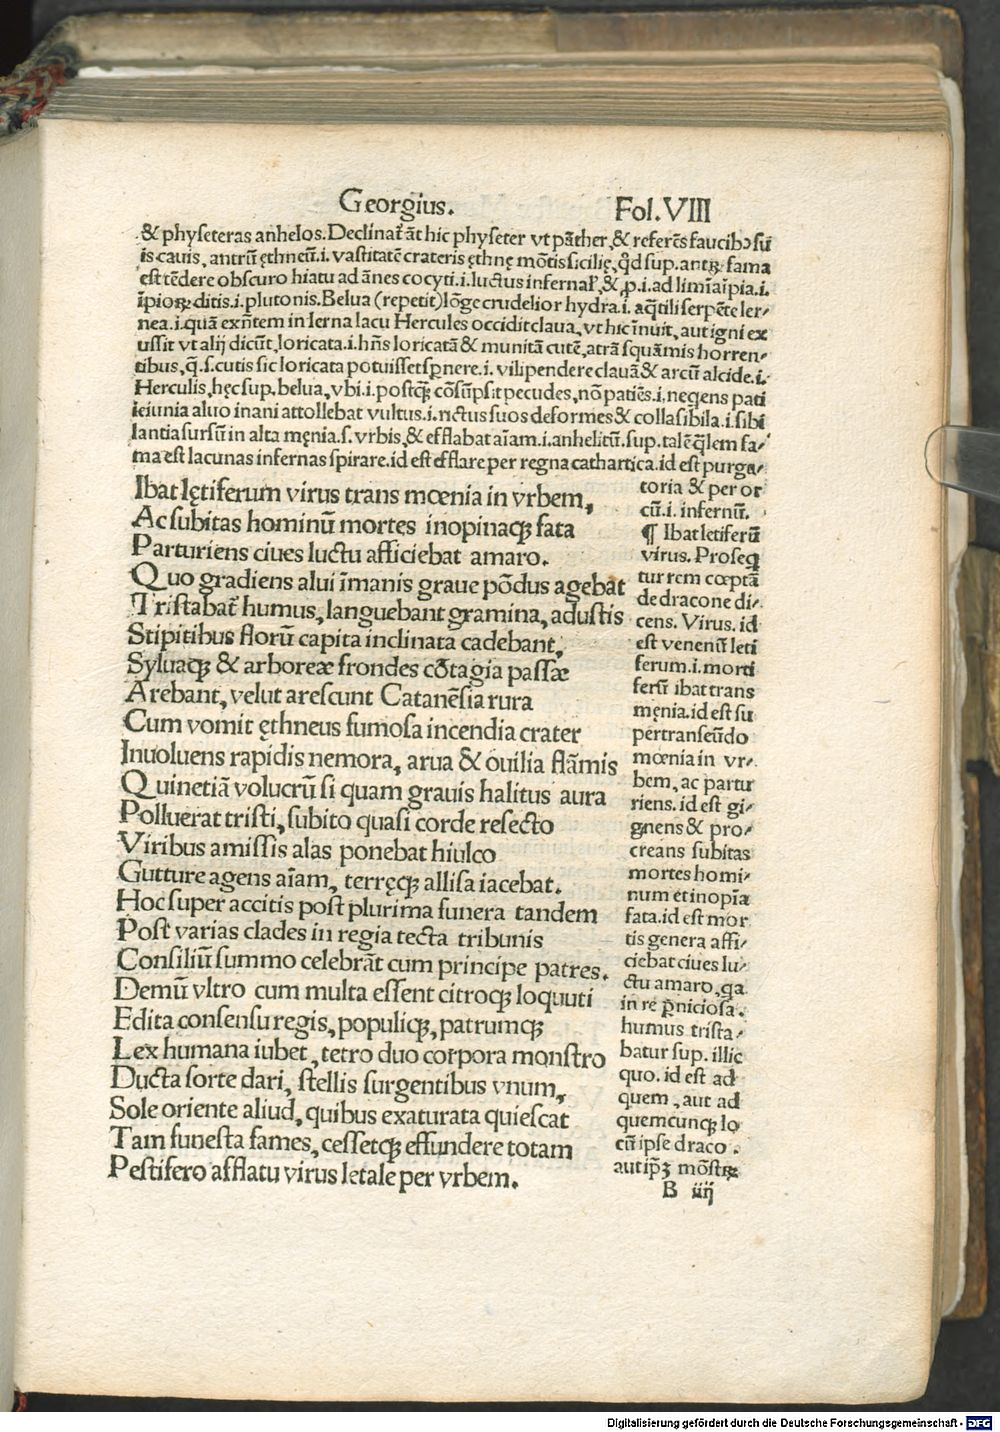 Georgius. Fol.VIII
& physeteras anhelos. Declinat̃ ãt hic physeter vt pãther, & referẽs faucibɔ sũ
is cauis, antrũ ęthneũ.i. vastitatẽ crateris ęthnę mõtis sicilię, qd̃ sup. antꝝ fama
est tẽdere obscuro hiatu ad ãnes cocyti.i. luctus infernaꝝ, & ,p.i. ad limĩa ĩpia.i.
ĩpioꝝ ditis.i. plutonis. Belua (repetit) lõge crudelior hydra.i. aq̃tili serpẽte ler⸗
nea.i. quã exñtem in lerna lacu Hercules occidit claua, vt hic ĩnuit, aut igni ex
ussit vt alij dicũt, loricata.i. hñs loricatã & munitã cutẽ, atrã squãmis horren⸗
tibus, q̃.s. cutis sic loricata potuisset spernere.i. vilipendere clauã & arcũ alcide.i.
Herculis, hęc sup. belua, vbi.i. postꝗ̃ cõsũpsit pecudes, nõ patiẽs.i. neqens pati
ieiunia aluo inani attollebat vultus.i. rictus suos deformes & colla sibila.i. sibi
lantia sursũ in alta męnia.s. vrbis, & efflabat aĩam.i. anhelitũ. sup. talẽ q̃lem fa⸗
ma est lacunas infernas spirare. id est efflare per regna cathartica. id est purga⸗
Ibat lętiferum virus trans mœnia in vrbem,
Ac subitas hominũ mortes inopinaqꝫ fata
Parturiens ciues luctu afficiebat amaro.
Quo gradiens alui ĩmanis graue põdus agebat
Tristabat̃ humus, languebant gramina, adustis
Stipitibus florũ capita inclinata cadebant,
Syluaqꝫ & arboreæ frondes cõtagia passæ
Arebant, velut arescunt Catanẽsia rura
Cum vomit ęthneus fumosa incendia crater
Inuoluens rapidis nemora, arua & ouilia flãmis
Quinetiã volucrũ si quam grauis halitus aura
Polluerat tristi, subito quasi corde resecto
Viribus amissis alas ponebat hiulco
Gutture agens aĩam, terręqꝫ allisa iacebat.
Hoc super accitis post plurima funera tandem
Post varias clades in regia tecta tribunis
Consiliũ summo celebrãt cum principe patres.
Demũ vltro cum multa essent citroqꝫ loquuti
Edita consensu regis, populiqꝫ, patrumqꝫ
Lex humana iubet, tetro duo corpora monstro
Ducta sorte dari, stellis surgentibus vnum,
Sole oriente aliud, quibus exaturata quiescat
Tam funesta fames, cessetqꝫ effundere totam
Pestifero afflatu virus letale per vrbem.
toria & per or
cũ.i. infernũ.
¶ Ibat letiferũ
virus. Proseq
tur rem cœptã
de dracone di⸗
cens. Virus. id
est venenũ leti
ferum.i. morti
ferũ ibat trans
męnia. id est su
per transeũdo
mœnia in vr⸗
bem, ac partu
riens. id est gi⸗
gnens & pro⸗
creans subitas
mortes homi⸗
num et inopĩa
fata. id est mor
tis genera affi⸗
ciebat ciues lu⸗
ctu amaro, qa
in re p̃niciosa.
humus trista⸗
batur sup. illic
quo. id est ad
quem, aut ad
quemcunqꝫ lo
cũ ipse draco.
aut ip̃ꝫ mõstꝝ
B iiij
Digitalisierung gefördert durch die Deutsche Forschungsgemeinschaft - DFG